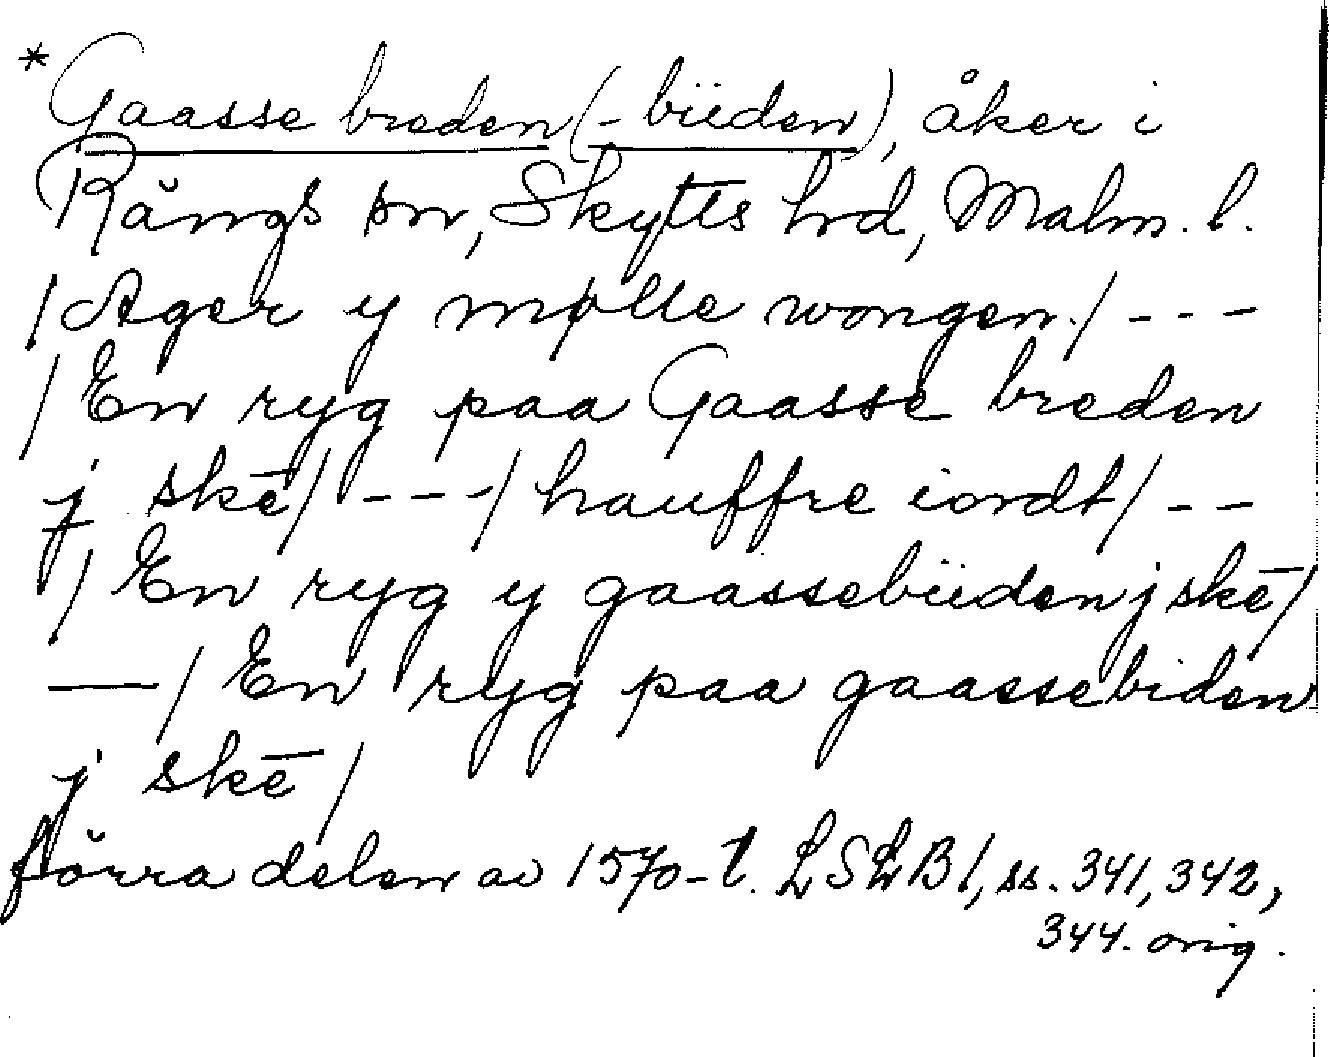 * Gaasse breden (- büden), åker i
Rängs sn, Skytts hrd, Malm. l.
/ Ager y mølle wongen / - - -
/ En ryg paa Gaasse breden
j skē / - - - / hauffre iordt / - -
/ En ryg y gaassebüden j skē /
— / En ryg paa gaassebiden
j skē /
förra delen av 1570-t. LSLB 1, ss. 341, 342,
344. orig.